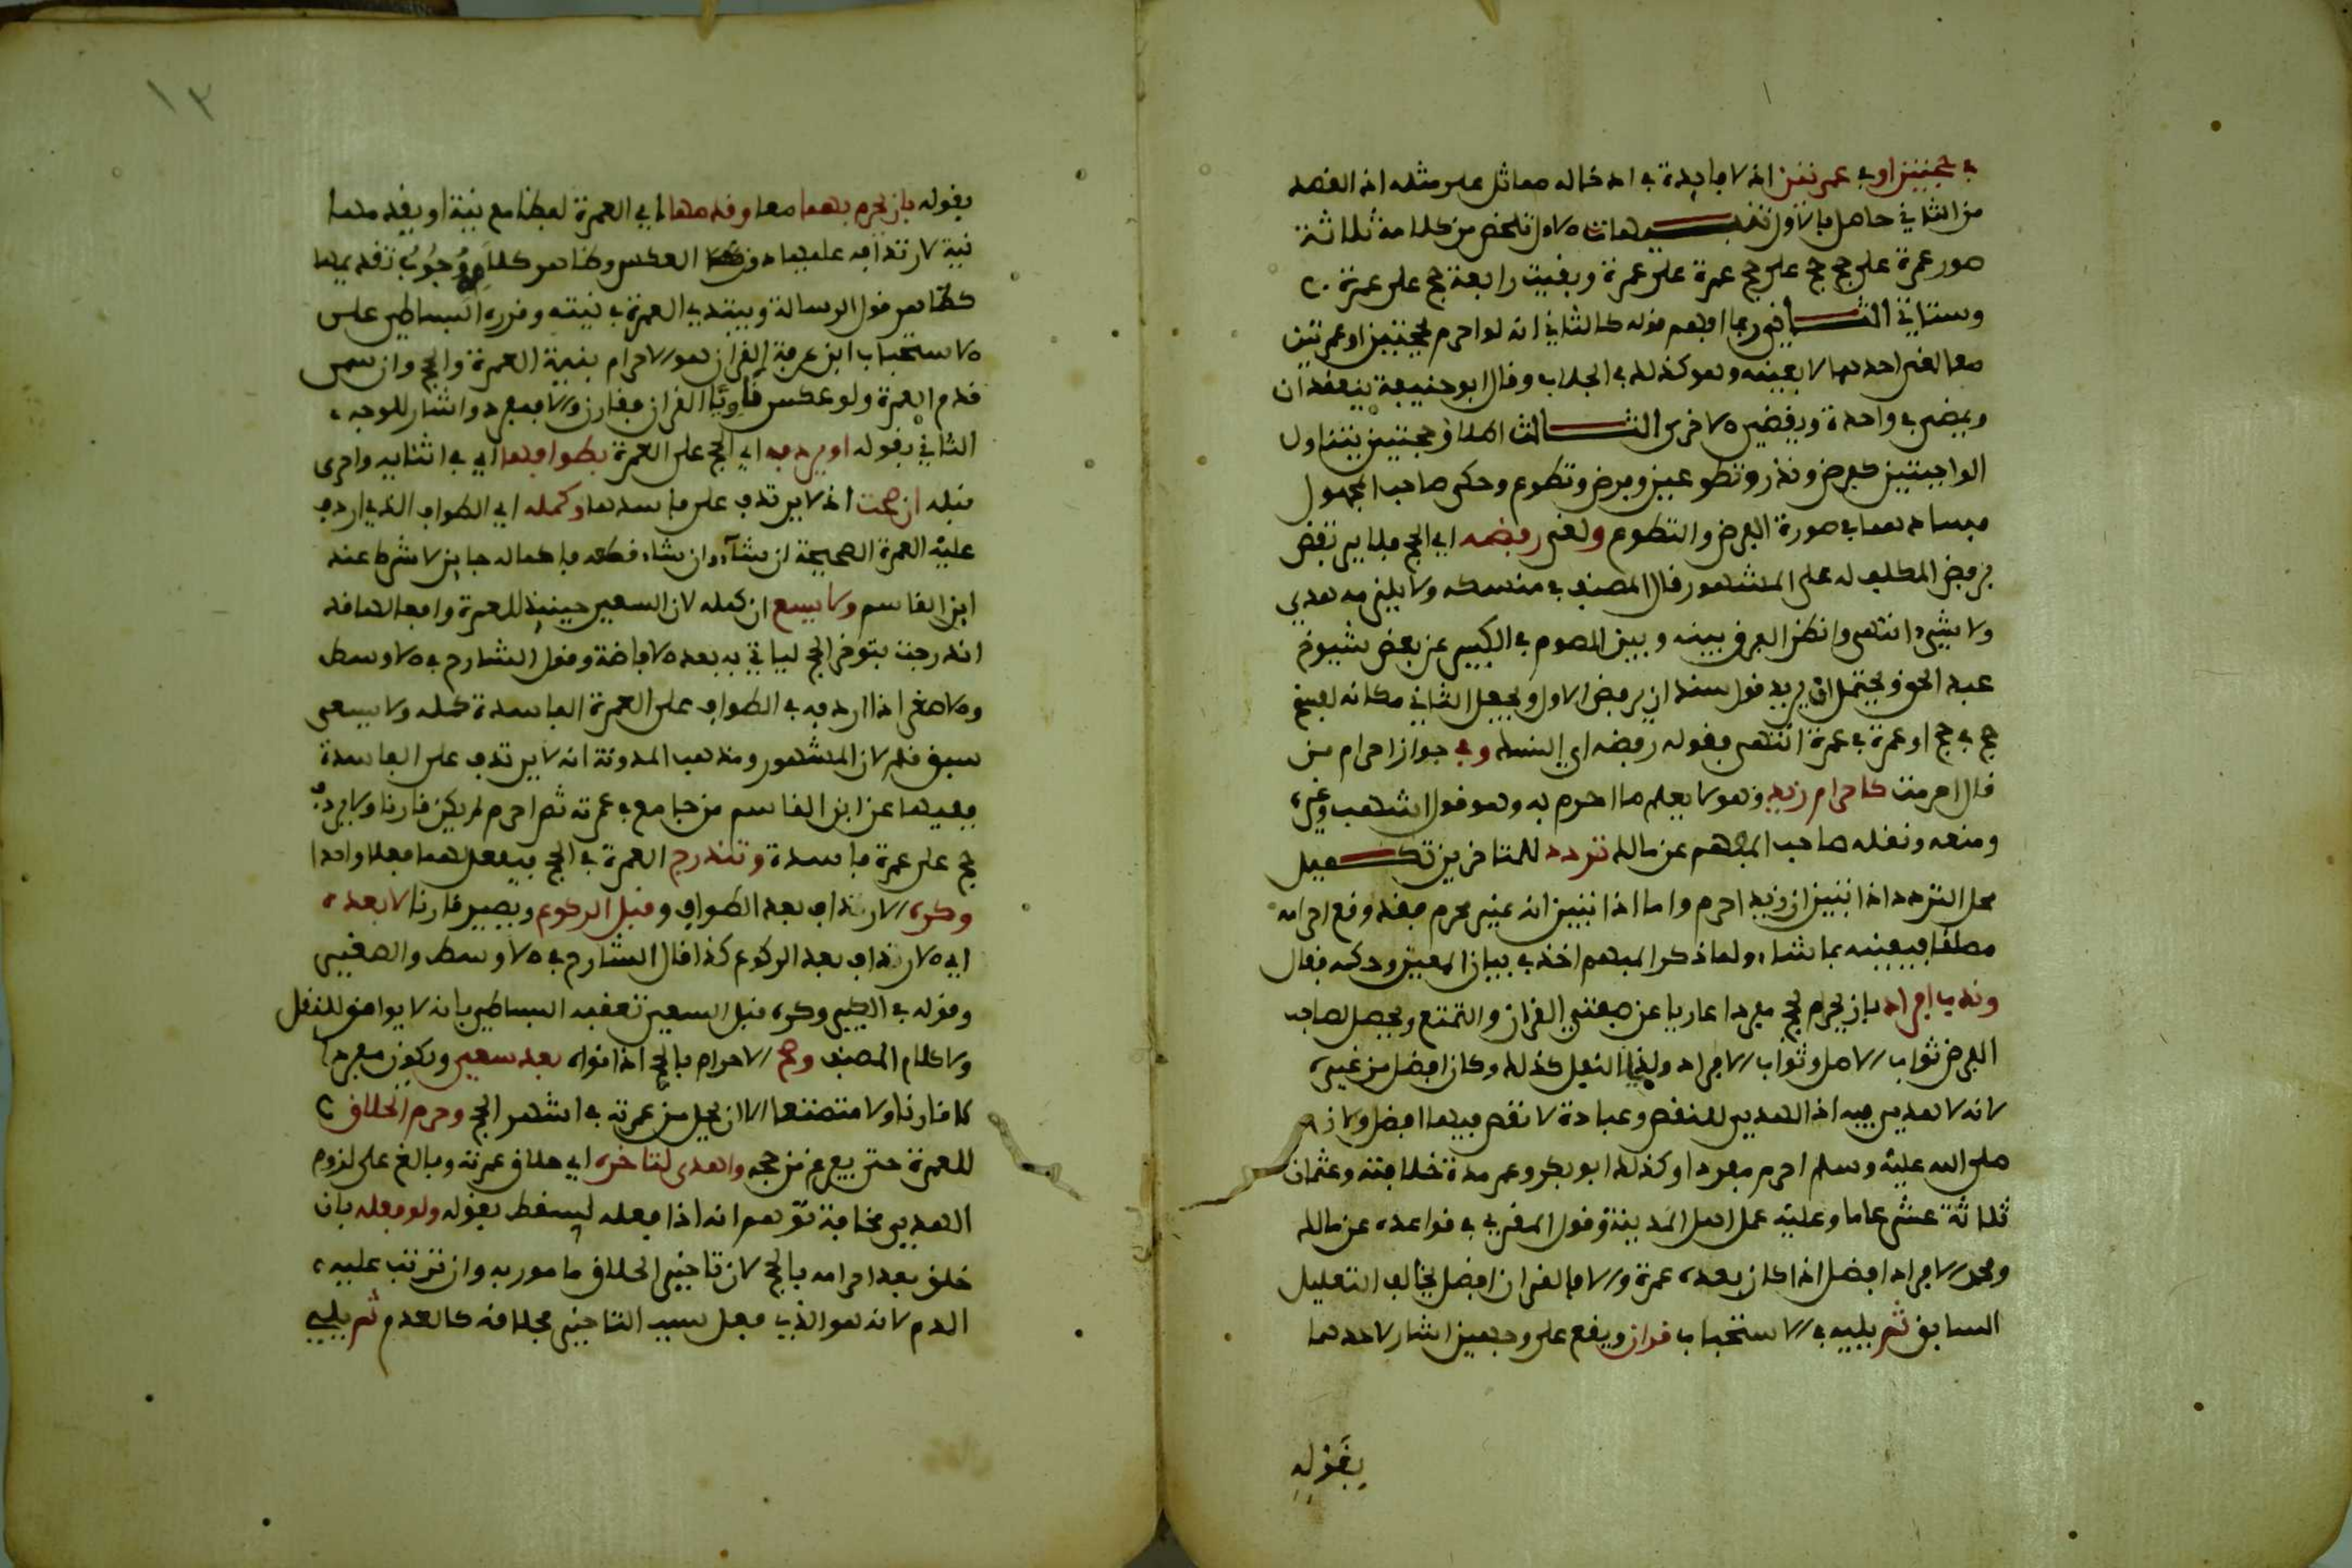 في حجتين او في عمرتين اذ لا فايدة في ادخاله مماثل على مثله اذ القصد
من الثاني حاصل بالاول تنبيهات الاول تلخص من كلامه ثلاثة
صور عمرة على حج حج على حج عمرة على عمرة وبقيت رابعة حج على عمرة
وستاتي الثاني ربما افهم قوله كالثاني انه لو احرم بحجتين او عمرتين
معا لغى احدهما لا بعينه وهو كذلك في الجلاب وقال ابو حنيفة ينعقدان
ويمضي في واحدة ويقضي الاخرى الثالث اطلاق حجتين يتناول
الواجبتين كفرض ونذر وتطوعين وفرض وتطوع وحكى صاحب المجهول
فسادهما في صورة الفرض والتطوع ولغى رفضه اي الحج فلا يرتفض
برفض المكلف له على المشهور قال المصنف في منسكه ولا يلزمه هدي
ولا شيء انتهى وانظر الفرق بينه وبين الصوم في الكبير عن بعض شيوخ
عبد الحق ويحتمل ان يريد قول سند ان يرفض الاول ويجعل الثاني مكانه لغيع
حج في حج او عمرة في عمرة انتهى فقوله رفضه اي النسك وفي جواز احرام من
قال احرمت كاحرام زيد وهو لا يعلم ما احرم به وهو قول اشهب وغيره
ومنعه ونقله صاحب المفهم عن مالك تردد للمتاخرين تكميل
محل التردد اذا تبين ان زيد احرم واما اذا تبين انه غير محرم فقد وقع احرامه
مطلقا فيعينه بما شاء ولما ذكر المبهم اخذ في بيان المعين وحكمه فقال
وندب افراد بان يحرم بحج مفردا عاريا عن صفتي القران والتمتع ويحصل لصاحب
الفرض ثواب الاصل وثواب الافراد ولذا النفل كذلك وكان افضل من غيره
لانه لا هدي فيه اذ الهدي للنقص وعبادة لا نقص فيها افضل ولانه
صلى الله عليه وسلم احرم مفردا وكذلك ابو بكر وعمر مدة خلافته وعثمان
ثلاثة عشر عاما وعليه عمل اهل المدينة وقول المقري في قواعده عن مالك
ومحمد الافراد افضل اذا كان بعده عمرة والا فالقران افضل يخالف التعليل
السابق ثم يليه في الاستحباب قران ويقع على وجهين اشار لاحدهما
بقوله
١٣
بقوله بان يحرم بهما معا وقدمها اي العمرة لفظا مع نية او يقدمها
نية لارتدافه عليها دون العكس وظاهر كلامه وجوب تقديمها
كظاهر قول الرسالة ويبتدي العمرة في نيته وقرره البساطي على
الاستحباب ابن عرفة القران هو الاحرام بنية العمرة والحج وان سمى
قدم العمرة ولو عكس ناويا القران فقارن والا فمفرد واشار للوجه
الثاني بقوله او يردفه اي الحج على العمرة بطوافها اي في اثنايه واحرى
قبله ان صحت اذ لا يرتدف على فاسدها وكمله اي الطواف الذي اردف
عليه العمرة الصحيحة ان شاء وان شاء قطعه فاكماله جايز لا شرط عند
ابن القاسم ولا يسع ان كمله لان السعي حينيذ للعمرة وافعالها قد
اندرجت بتوخي الحج لياتي به بعد الافاضة وقول الشارح في الاوسط
والاصغر اذا اردفه في الطواف على العمرة الفاسدة كمله ولا يسعى
سبق قلم لان المشهور ومذهب المدونة انه لا يرتدف على الفاسدة
ففيها عن ابن القاسم من جامع في عمرته ثم احرم لم يكن قارنا ولا يردف
حج على عمرة فاسدة وتندرج العمرة في الحج فيفعل لهما فعلا واحدا
وكره الارتداف بعد الطواف وقبل الركوع ويصير قارنا لا بعده
اي الارتداف بعد الركوع كذا قال الشارح في الاوسط والصغير
وقوله في الكبير وكره قبل السعي تعقبه البساطي بانه لا يوافق للنقل
ولا كلام المصنف وصح الاحرام بالحج اذا نواه بعد سعي ويكون مفردا
لا قارنا ولا متمتعا الا ان يحل من عمرته في اشهر الحج وحرم الحلاق
للعمرة حتى يفرغ من حجه واهدى لتاخره اي حلاق عمرته وبالغ على لزوم
الهدي مخافة توهم انه اذا فعله يسقط بقوله ولو فعله بان
حلق بعد احرامه بالحج لان تاخير الحلاق مامور به وان ترتب عليه
الدم لانه هو الذي فعل سبب التاخير فحلاقه كالعدم ثم يليه